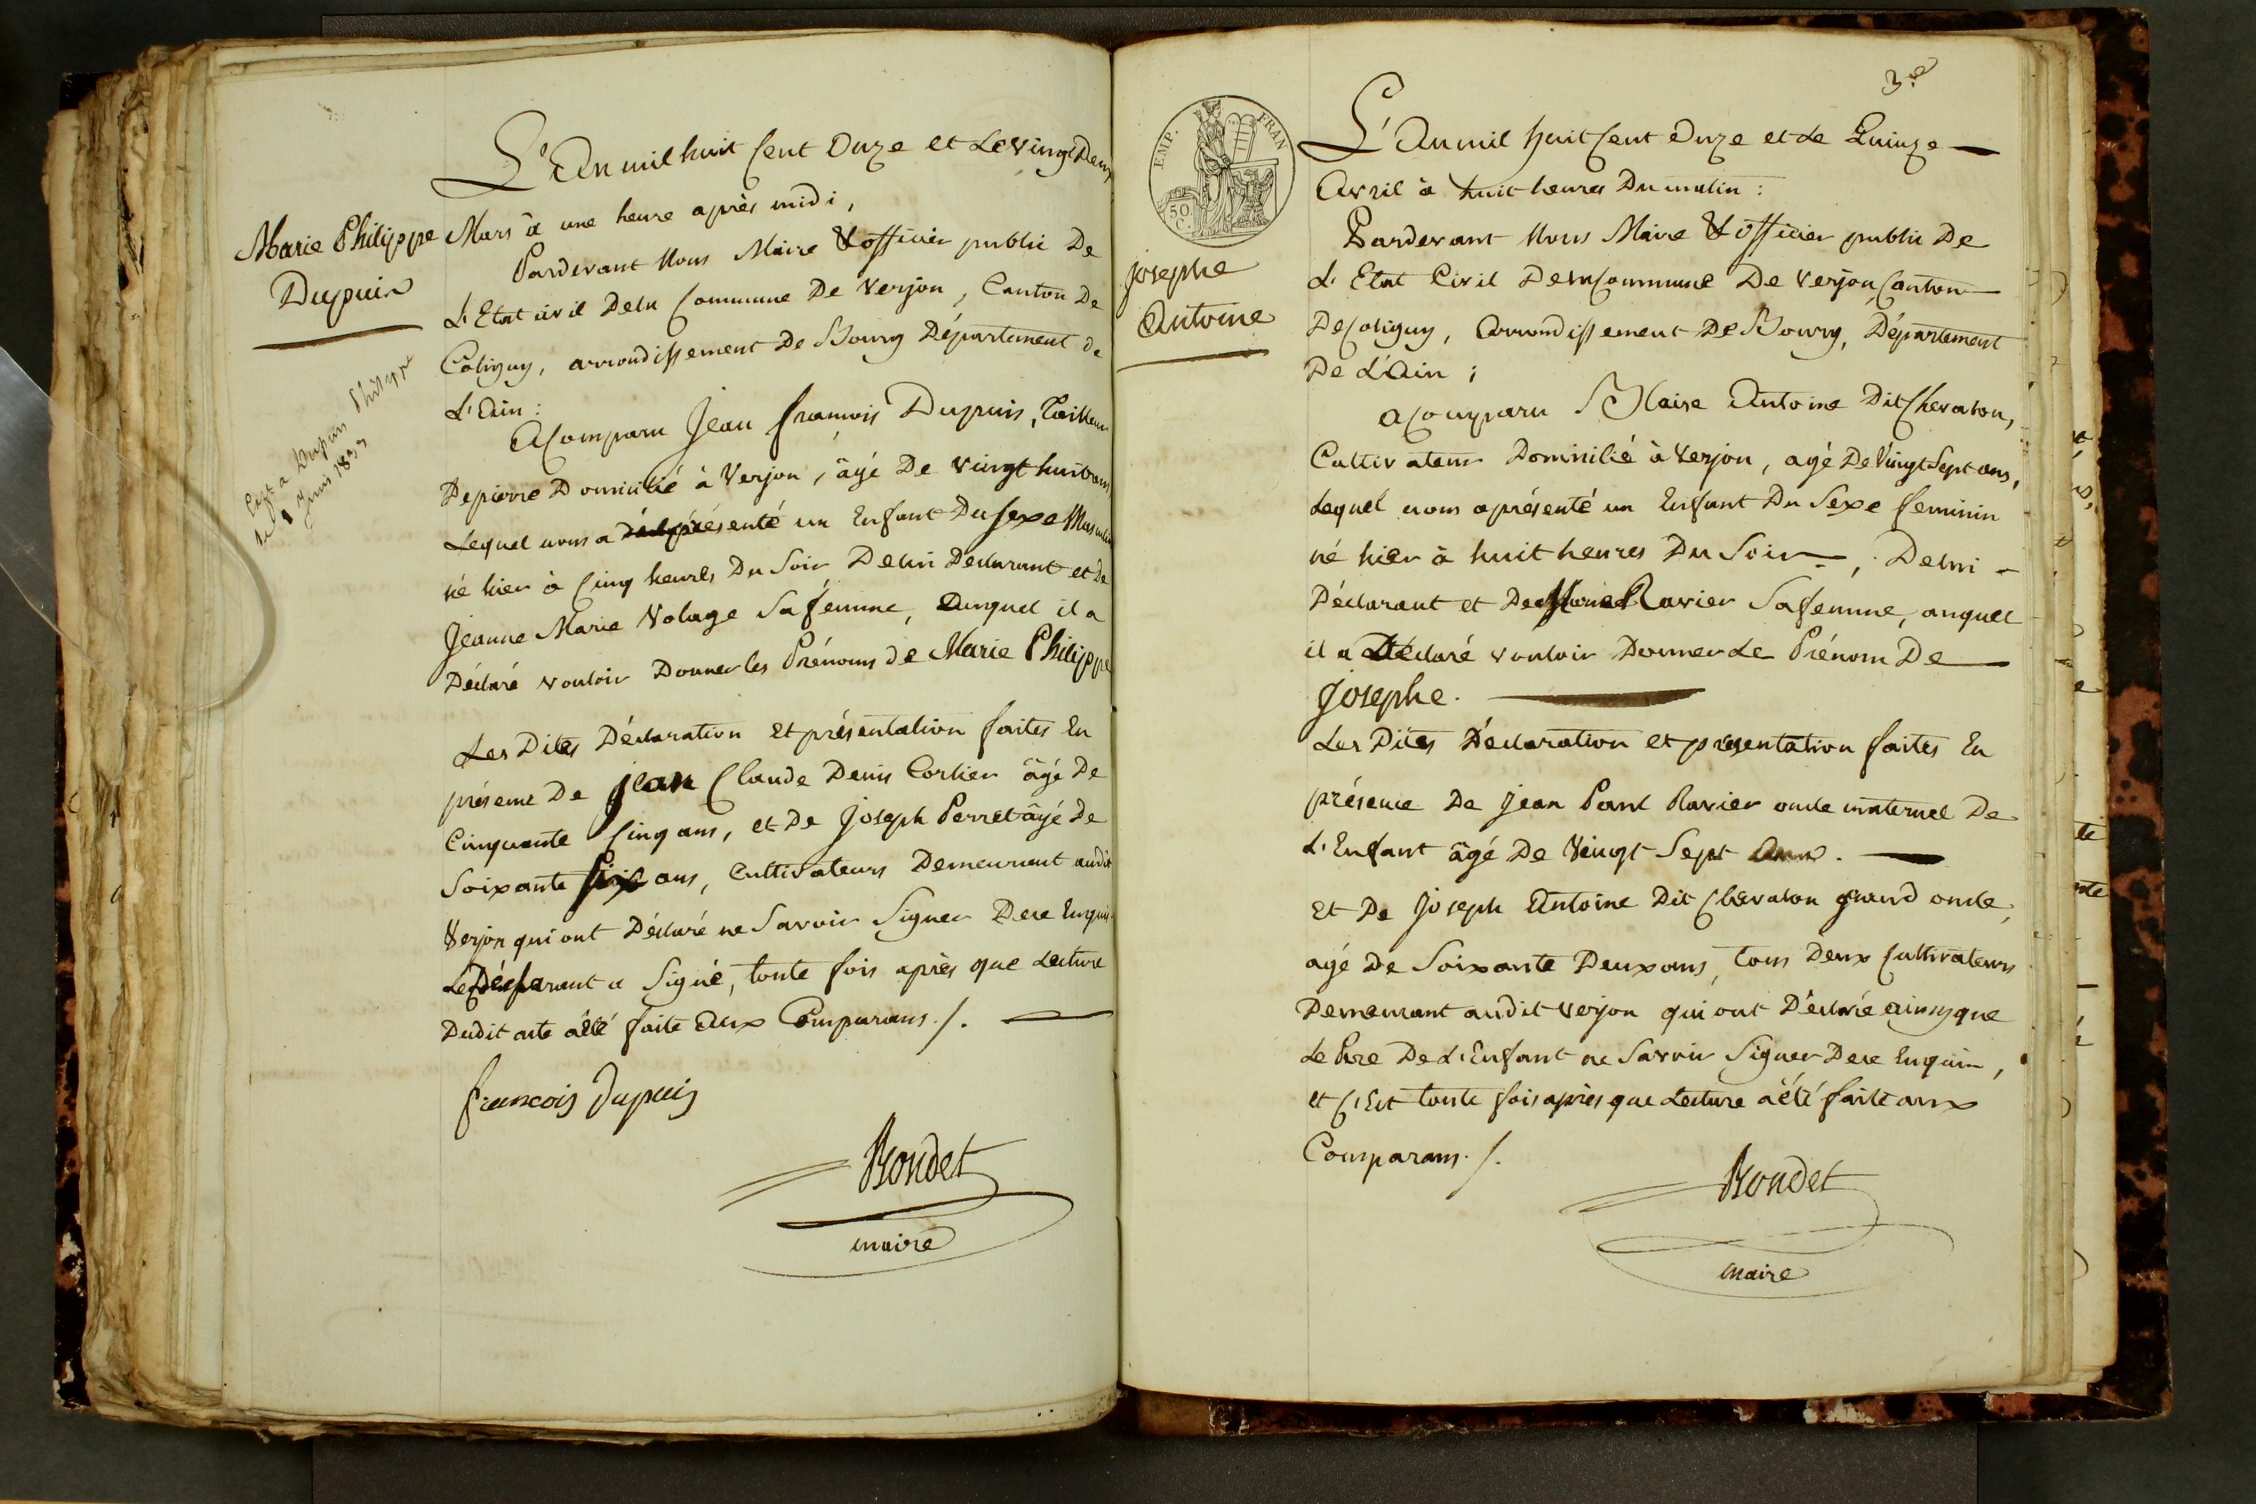 L'An mil huit Cent Onze et Le vingt Deux
Mars à une heure après midi,
Marie Philippe
Dupuis
Pardevant Nous Maire & officier public De
L'Etat civil Dela Commune De Verjon, Canton De
Coligny, arrondissement De Bourg Département de
L'Ain :
A Comparu Jean francois Dupuis, Tailleur
De pierre Domicilié à Verjon, âgé De vingt huit ans
Lequel nous a présenté un Enfant Du Sexe Masculin
né hier à Cinq heures Du Soir De lui Déclarant et De
Jeanne Marie Volage Sa femme, Auquel il a
Déclaré vouloir Donner les Prénoms de Marie Philippe
Les Dites Déclaration et présentation faites En
présence De jean Claude Denis Cortier âgé De
Cinquante Cinq ans, et De Joseph Perret âgé De
Soixante Six ans, Cultivateurs Demeurant audit
Verjon qui ont Déclaré ne Savoir Signer De ce Enquis
Le Déclarant a Signé, toute fois après que Lecture
Dudit acte a été faite Aux Comparans ./.
francois Dupuis
Rondet
maire
Dupuis Philippe
juin
3.e
EMP. FRAN
50 C.
josephe
Antoine
L'An mil huit Cent Onze et Le Quinze
Avril à huit heures Du matin :
Pardevant Nous Maire & Officier public De
L'Etat Civil Dela Commune De Verjon Canton
De Coligny, Arrondissement De Bourg, Département
De L'Ain ;
A Comparu Blaise Antoine Dit Chevalon,
Cultivateur Domicilié à Verjon, agé De Vingt Sept ans,
Lequel nous a présenté un Enfant Du Sexe feminin
né hier à huit heures Du Soir, De lui
Déclarant et De Marie Ravier Sa femme, auquel
il a Déclaré vouloir Donner Le Prénom De
Josephe.
Les Dites Déclaration et presentation faites En
présence De jean Paul Ravier oncle maternel De
L'Enfant âgé De Vingt Sept Ans.
et De Joseph Antoine Dit Chevalon grand oncle,
agé De Soixante Deux ans, tous Deux Cultivateurs
Demeurant audit Verjon qui ont Déclaré ainsy que
Le Pere De L'Enfant ne Savoir Signer De ce Enquis,
et C'Est toute fois après que Lecture a été faite aux
Comparans ./.
Rondet
maire